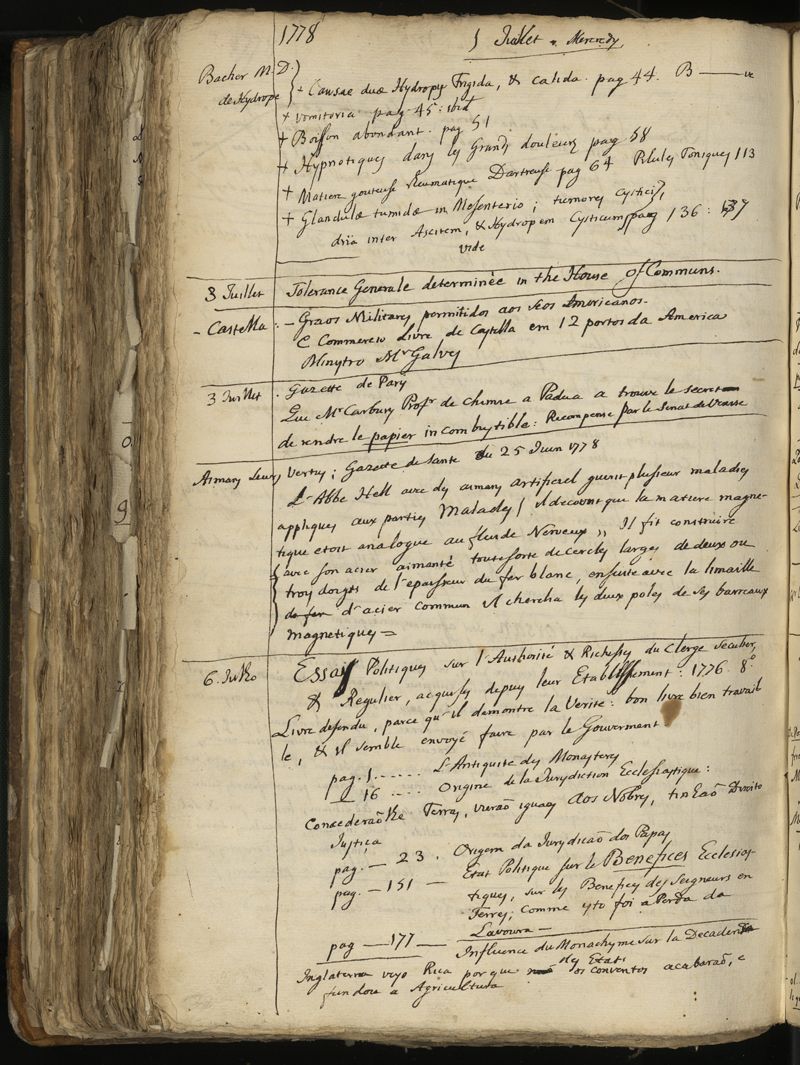 1778
1 Juillet Mercredy
Bacher M. D.
de Hydrope
+ Causae duae Hydropis Frigida, & calida. pag 44. B
+ vomitoria pag. 45: ibid
+ Boisson abondant. pag 51
+ Hypnotiques dans les Grands douleurs pag 58
+ Matiere gouteuse Reumatique Dartreuse pag 64 Pilules Toniques 113
+ Glandulae tumidae in Mesenterio; tumores cystici,
inter Ascitem, & Hydropem Cysticum, pag 136: 137
vide
3 Juillet
Tolerance Generale determinée in the House of Communs.
- Castella.
- Graos Militares permitidos aos Americanos.
E Commercio Livre de Castella em 12 portos da America
Minystro Mr Galves
3 Juillet.
Gazette de Parys
Que Mr Carbury Profr de Chimie a Padua a trouvé le secret
de rendre le papier incombustible: Recompensé par le Senat de Venise
Aimans leurs
Vertus; Gazette de Santé du 25 Juin 1778
L'Abbe Hell avec des aimans artificiel guerit plusieur maladies
appliques aux parties Malades / Il decouvrit que la matiere magne-
tique etoit analogue au fluide Nerveux,, Il fit construire
avec son acier aimanté toute sorte de cercles larges de deux ou
troys doigts de l'epaisseur du fer blanc, ensuite avec la limaille
de fer d'acier commun Il chercha les deux poles de ses barreaux
magnetiques =
6. Julho
Essays Politiques sur l'Authorité & Richesses du Clerge seculier,
& Regulier, acquises depuys leur Etablissement: 1776. 8.o
Livre defendu, parce qu'il demontre la Verité: bon livre bien travail
le, & il semble envoyé faire par le Gouverment
pag. 1...... L'Antiquité des Monasteres
16 .... Origine de la Jurysdiction Ecclesiastique:
Concederaõ lhe Terras, vieraõ iguaes aos Nobres, tinhaõ Direito
Justiça
pag. — 23. Origem da Jurydicaõ dos Papas
pag. — 151 — Etat Politique sur le Benefices Ecclesias
tiques, sur les Benefices des Seigneurs en
Terres; comme ysto foi a Perda da
Lavoura —
pag — 177 — Influence du Monachysme sur la Decadence
des Etats
Inglaterra veyo Rica porque os conventos acabaraõ, e
fundou a Agricultura